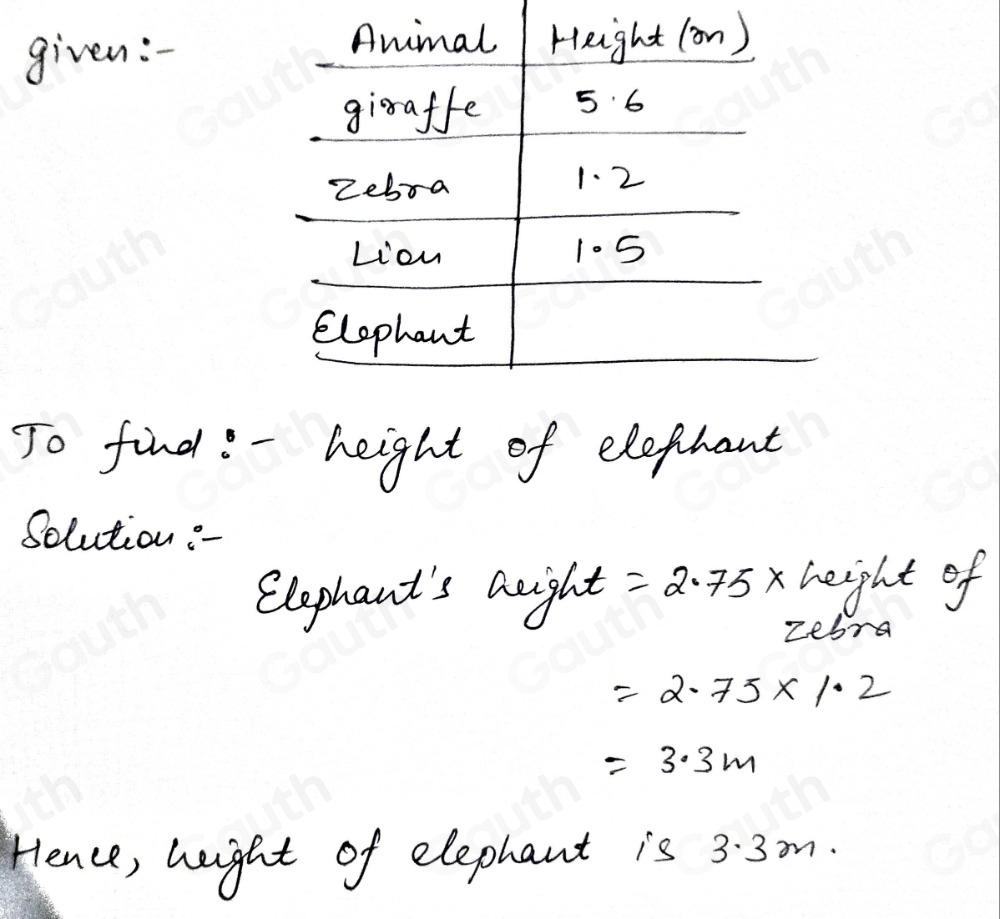 given:- Animal Height (m)
giraffe 5.6
Zebra 1.2
Lion 1.5
Elephant
To find:- height of elephant
Solution:-
Elephant's height = 2.75 × height of
zebra
= 2.75 × 1.2
= 3.3m
Hence, height of elephant is 3.3m.